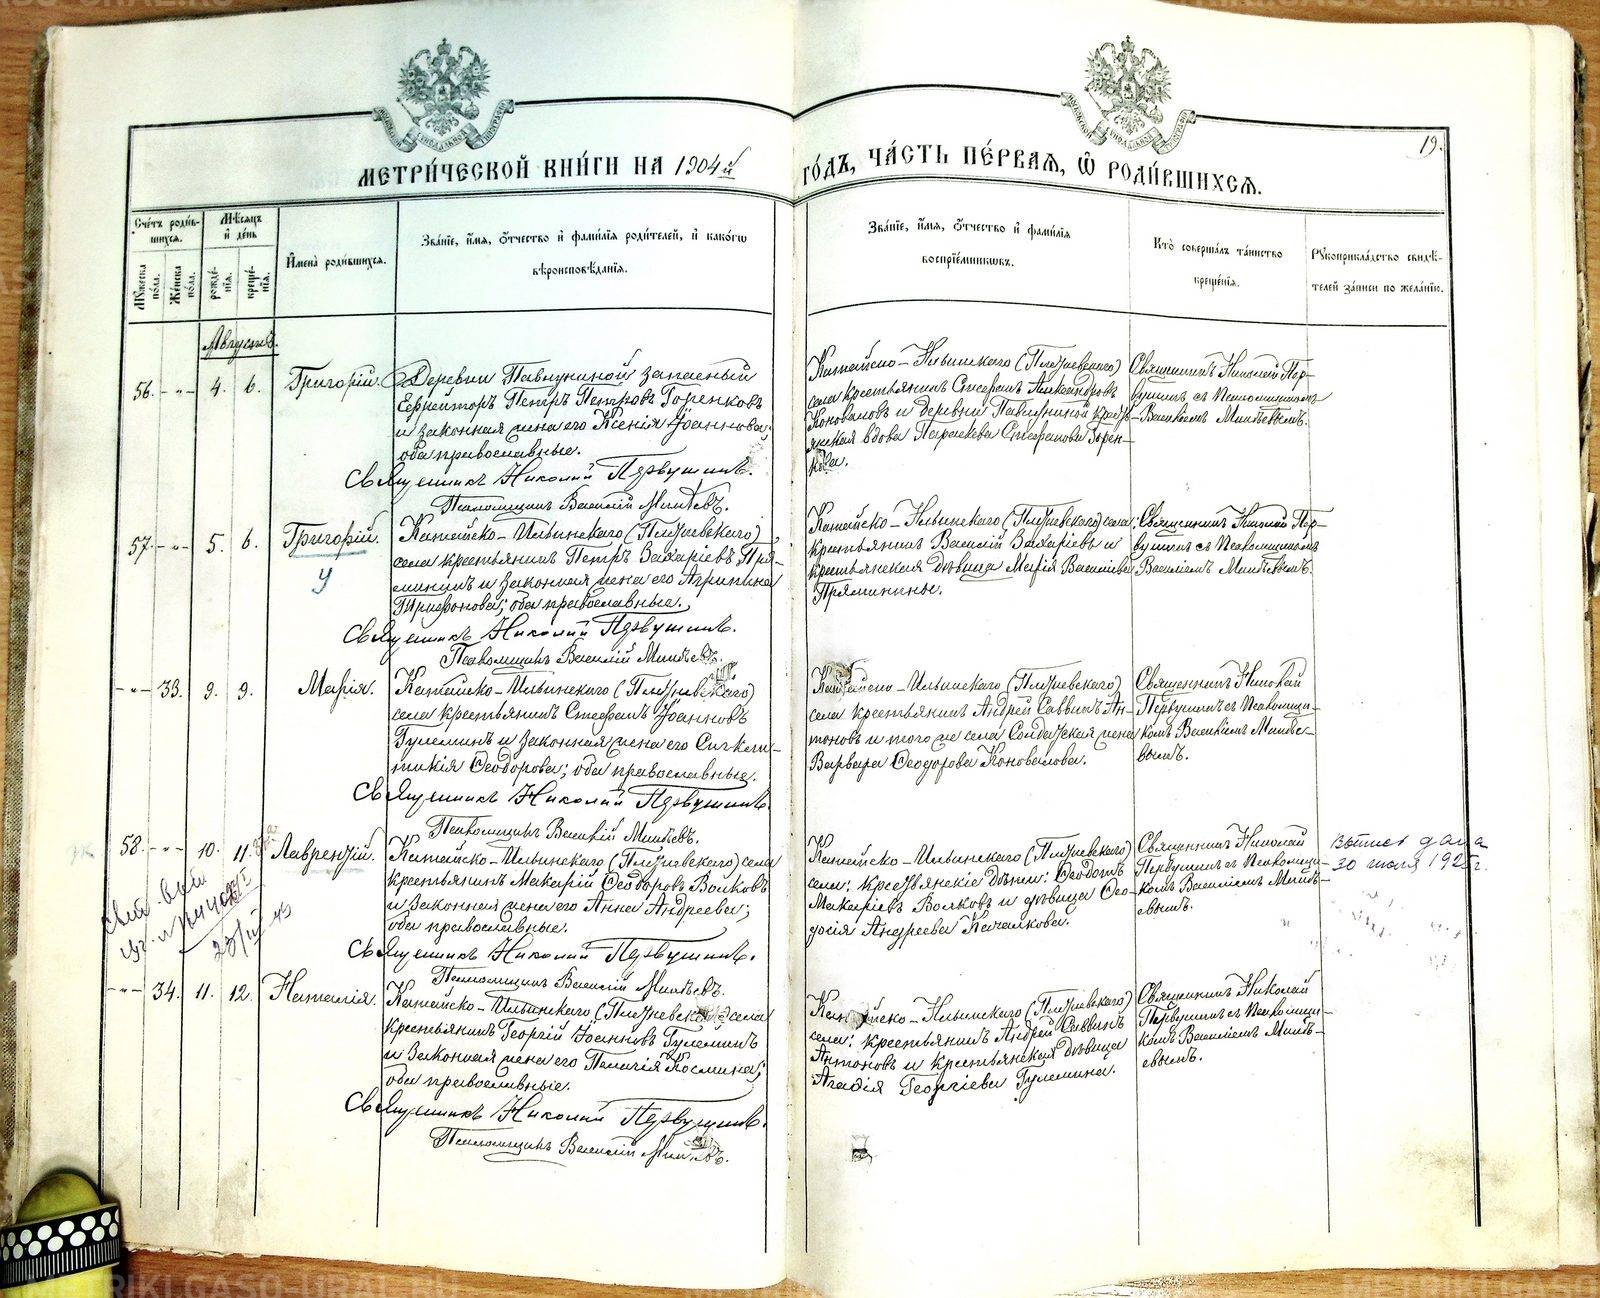 МЕТРИ́ЧЕСКОЙ КНИ́ГИ НА 1904й ГО́ДЪ, ЧА́СТЬ ПЕ́РВАѦ, Ѽ РОДИ́ВШИХСѦ.
19.
Сче́тъ роди́вшихсѧ.
Мꙋ́жеска по́ла.
Же́нска по́ла.
Мѣ́сѧцъ и҆ де́нь
рожде́нїѧ.
креще́нїѧ.
И҆мена̀ роди́вшихсѧ.
Зва́нїе, и҆́мѧ, ѻ҆́тчество и҆ фами́лїѧ роди́телей, и҆ како́гѡ
вѣроисповѣ́данїѧ.
Зва́нїе, и҆́мѧ, ѻ҆́тчество и҆ фами́лїѧ
воспрїе́мникѡвъ.
Кто̀ соверша́лъ та́инство
креще́нїѧ.
Рꙋкоприкла́дство свидѣ́-
телей за́писи по жела́нїю.
Августъ.
56. -"- 4. 6. Григорій.
Деревни Павлушиной запасный
Ефрейторъ Петръ Петровъ Горенковъ
и законная жена его Ксенія Іоаннова;
оба православные.
Священникъ Николай Первушинъ.
Псаломщикъ Василій Минѣевъ.
Катайско-Ильинскаго (Плуневскаго)
села крестьянинъ Стефанъ Александровъ
Коноваловъ и деревни Павлушиной кресть-
янская вдова Параскева Стефанова Горен-
кова.
Священникъ Николай Пер-
вушинъ съ Псаломщикомъ
Василіемъ Минѣевымъ.
57. -"- 5. 6. Григорій.
У
Катайско-Ильинскаго (Плуневскаго)
села крестьянинъ Петръ Захаріевъ Пря-
мининъ и законная жена его Агрипина
Трифонова; оба православные.
Священникъ Николай Первушинъ.
Псаломщикъ Василій Минѣевъ.
Катайско-Ильинскаго (Плуневскаго) села:
крестьянинъ Василій Захаріевъ и
крестьянская дѣвица Марія Васильева
Пряминины.
Священникъ Николай Пер-
вушинъ съ Псаломщикомъ
Василіемъ Минѣевымъ.
-"- 33. 9. 9. Марія.
Катайско-Ильинскаго (Плуневскаго)
села крестьянинъ Стефанъ Іоанновъ
Гулеминъ и законная жена его Сигкли-
тикія Ѳеодорова; оба православные.
Священникъ Николай Первушинъ.
Псаломщикъ Василій Минѣевъ.
Катайско-Ильинскаго (Плуневскаго)
села крестьянинъ Андрей Саввинъ Ан-
тоновъ и того же села Солдатская жена
Варвара Ѳеодорова Коновалова.
Священникъ Николай
Первушинъ съ Псаломщи-
комъ Василіемъ Минѣе-
вымъ.
58. -"- 10. 11. Лаврентій.
Катайско-Ильинскаго (Плуневскаго) села
крестьянинъ Макарій Ѳеодоровъ Волковъ
и законная жена его Анна Андреева;
оба православные.
Священникъ Николай Первушинъ.
Псаломщикъ Василій Минѣевъ.
Катайско-Ильинскаго (Плуневскаго)
села: крестьянскіе дѣти: Ѳеодотъ
Макаріевъ Волковъ и дѣвица Ѳео-
досія Андреева Качалкова.
Священникъ Николай
Первушинъ съ Псаломщи-
комъ Василіемъ Минѣ-
евымъ.
выпись дана
30 июля 1925г.
-"- 34. 11. 12. Наталія.
Катайско-Ильинскаго (Плуневскаго) села
крестьянинъ Георгій Іоанновъ Гулеминъ
и законная жена его Пелагія Космина;
оба православные.
Священникъ Николай Первушинъ.
Псаломщикъ Василій Минѣевъ.
Катайско-Ильинскаго (Плуневскаго)
села: крестьянинъ Андрей Саввинъ
Антоновъ и крестьянская дѣвица
Агафія Георгіева Гулемина.
Священникъ Николай
Первушинъ съ Псаломщи-
комъ Василіемъ Минѣ-
евымъ.
METRIKI.GASO-URAL.RU